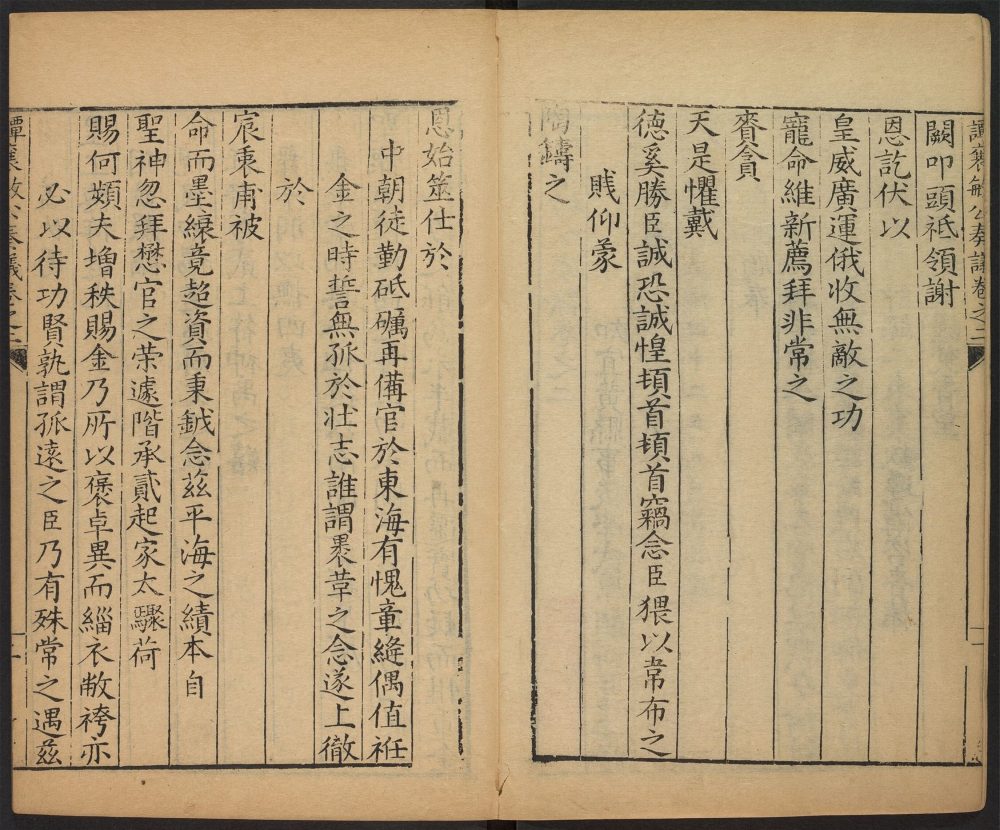 譚襄敏公奏議卷之二
闕叩頭祗領謝
恩訖伏以
皇威廣運俄收無敵之功
寵命維新薦拜非常之
賚貪
天是懼戴
德奚勝臣誠恐誠惶頓首頓首竊念臣猥以韋布之
賤仰蒙
陶鑄之
恩始筮仕於
中朝徒勤砥礪再備官於東海有愧章縫偶值袵
金之時誓無孤於壯志誰謂褁革之念遂上徹
於
宸衷甫被
命而墨縗竟超資而秉鉞念茲平海之績本自
聖神忽拜懋官之荣遽階承貳起家太驟荷
賜何頻夫增秩賜金乃所以褒卓異而緇衣敝袴亦
必以待功賢孰謂孤遠之臣乃有殊常之遇茲
譚襄敏公奏議卷之二